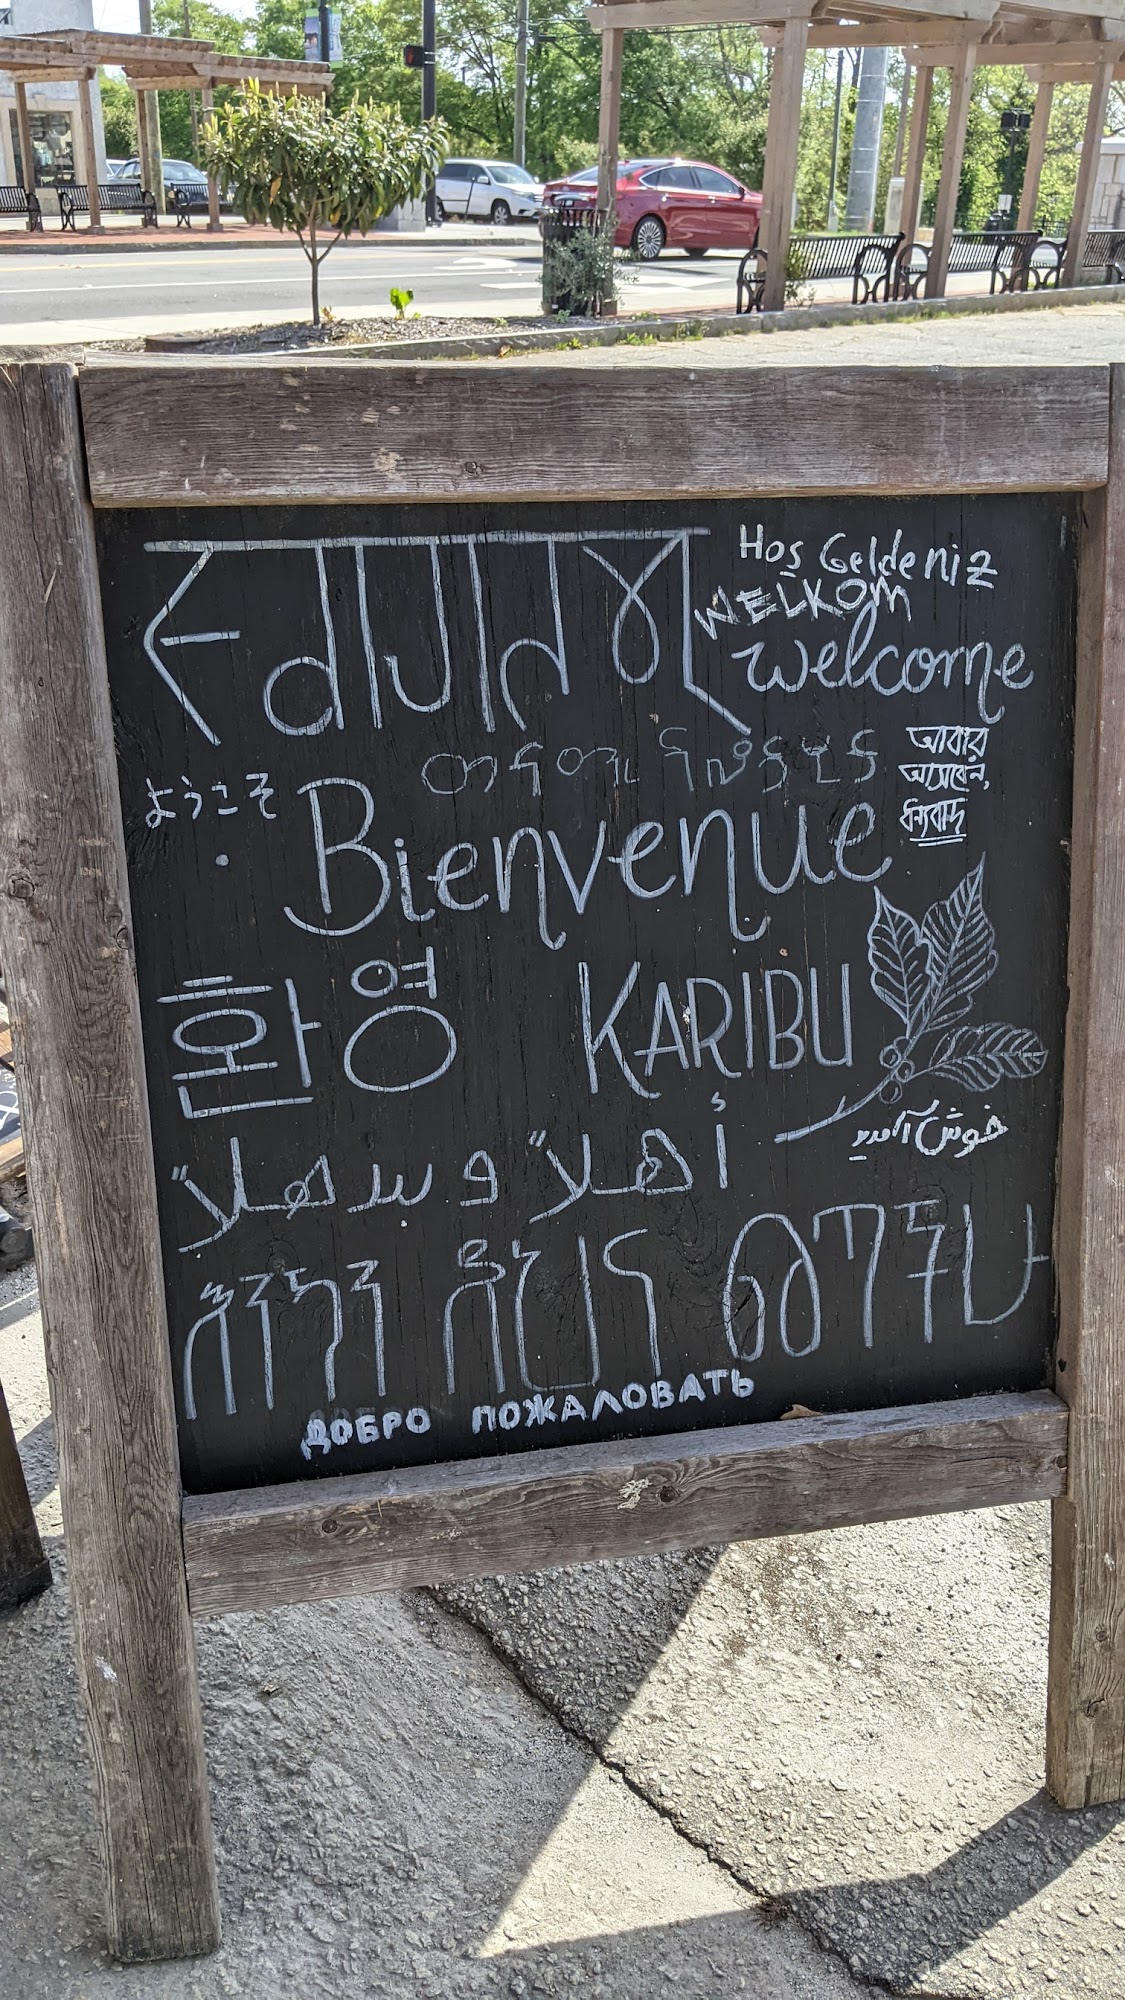 स्वागतम्
Hoş Geldeniz
WELKOM
welcome
আবার
আসবেন,
ধন্যবাদ
ようこそ
Bienvenue
환영
KARIBU
خوش آمدید
أهلاً و سهلاً
ДОБРО ПОЖАЛОВАТЬ